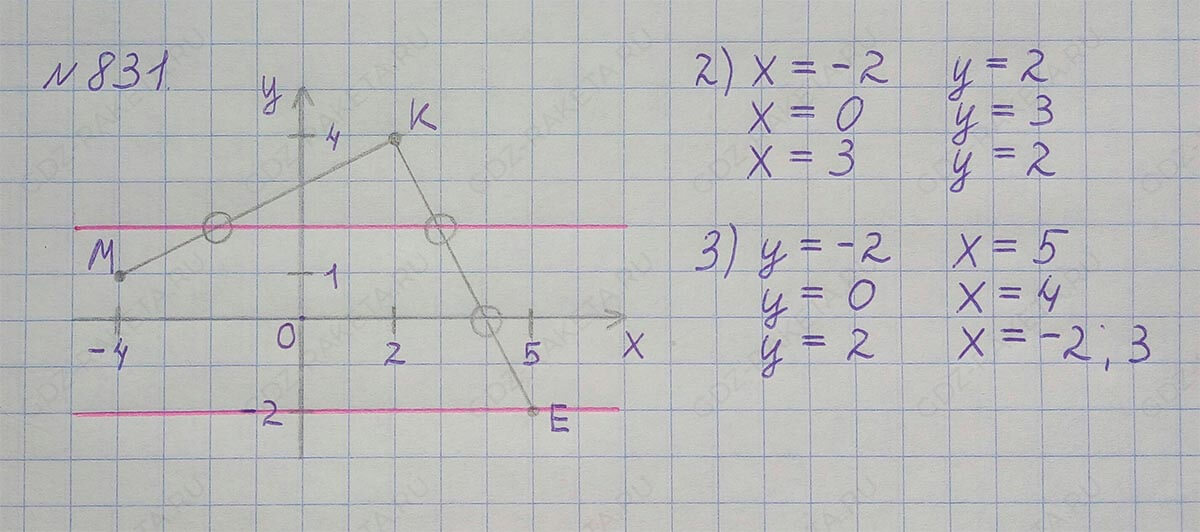 № 831.
y
4
K
M
1
-4
0
2
5
X
-2
E
2) x = -2 y = 2
x = 0 y = 3
x = 3 y = 2
3) y = -2 x = 5
y = 0 x = 4
y = 2 x = -2; 3
GDZ-RAKETA.RU